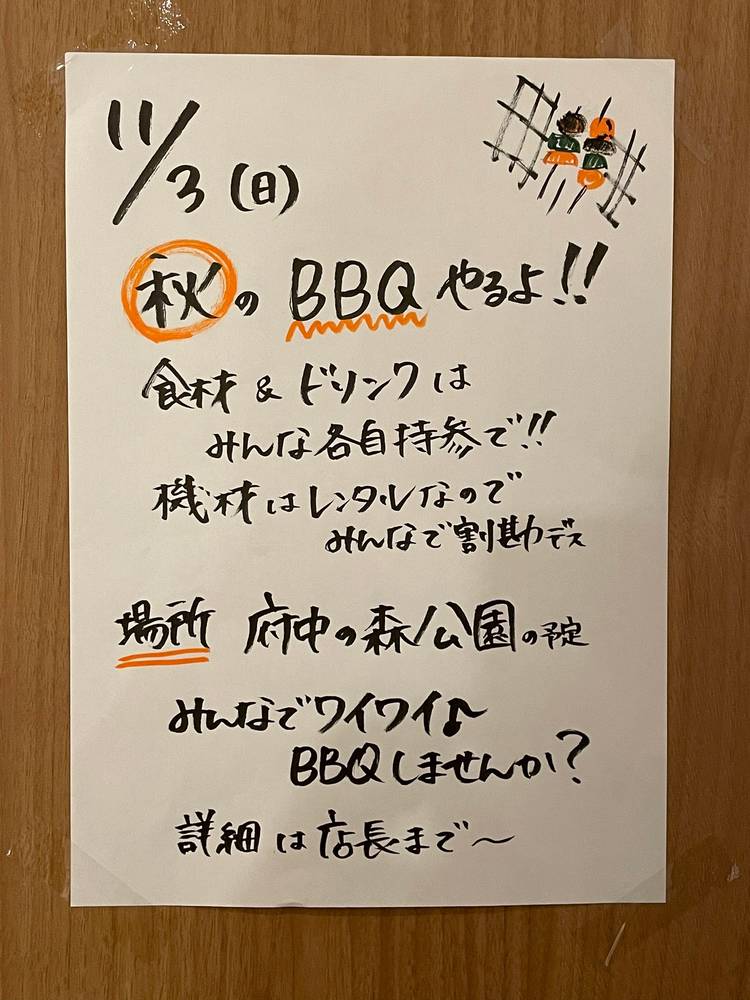 11/3(日)
秋の BBQ やるよ!!
食材 & ドリンクは
みんな各自持参で!!
機材はレンタルなので
みんなで割勘デス
場所 府中の森公園の予定
みんなでワイワイ♪
BBQしませんか?
詳細は店長まで〜